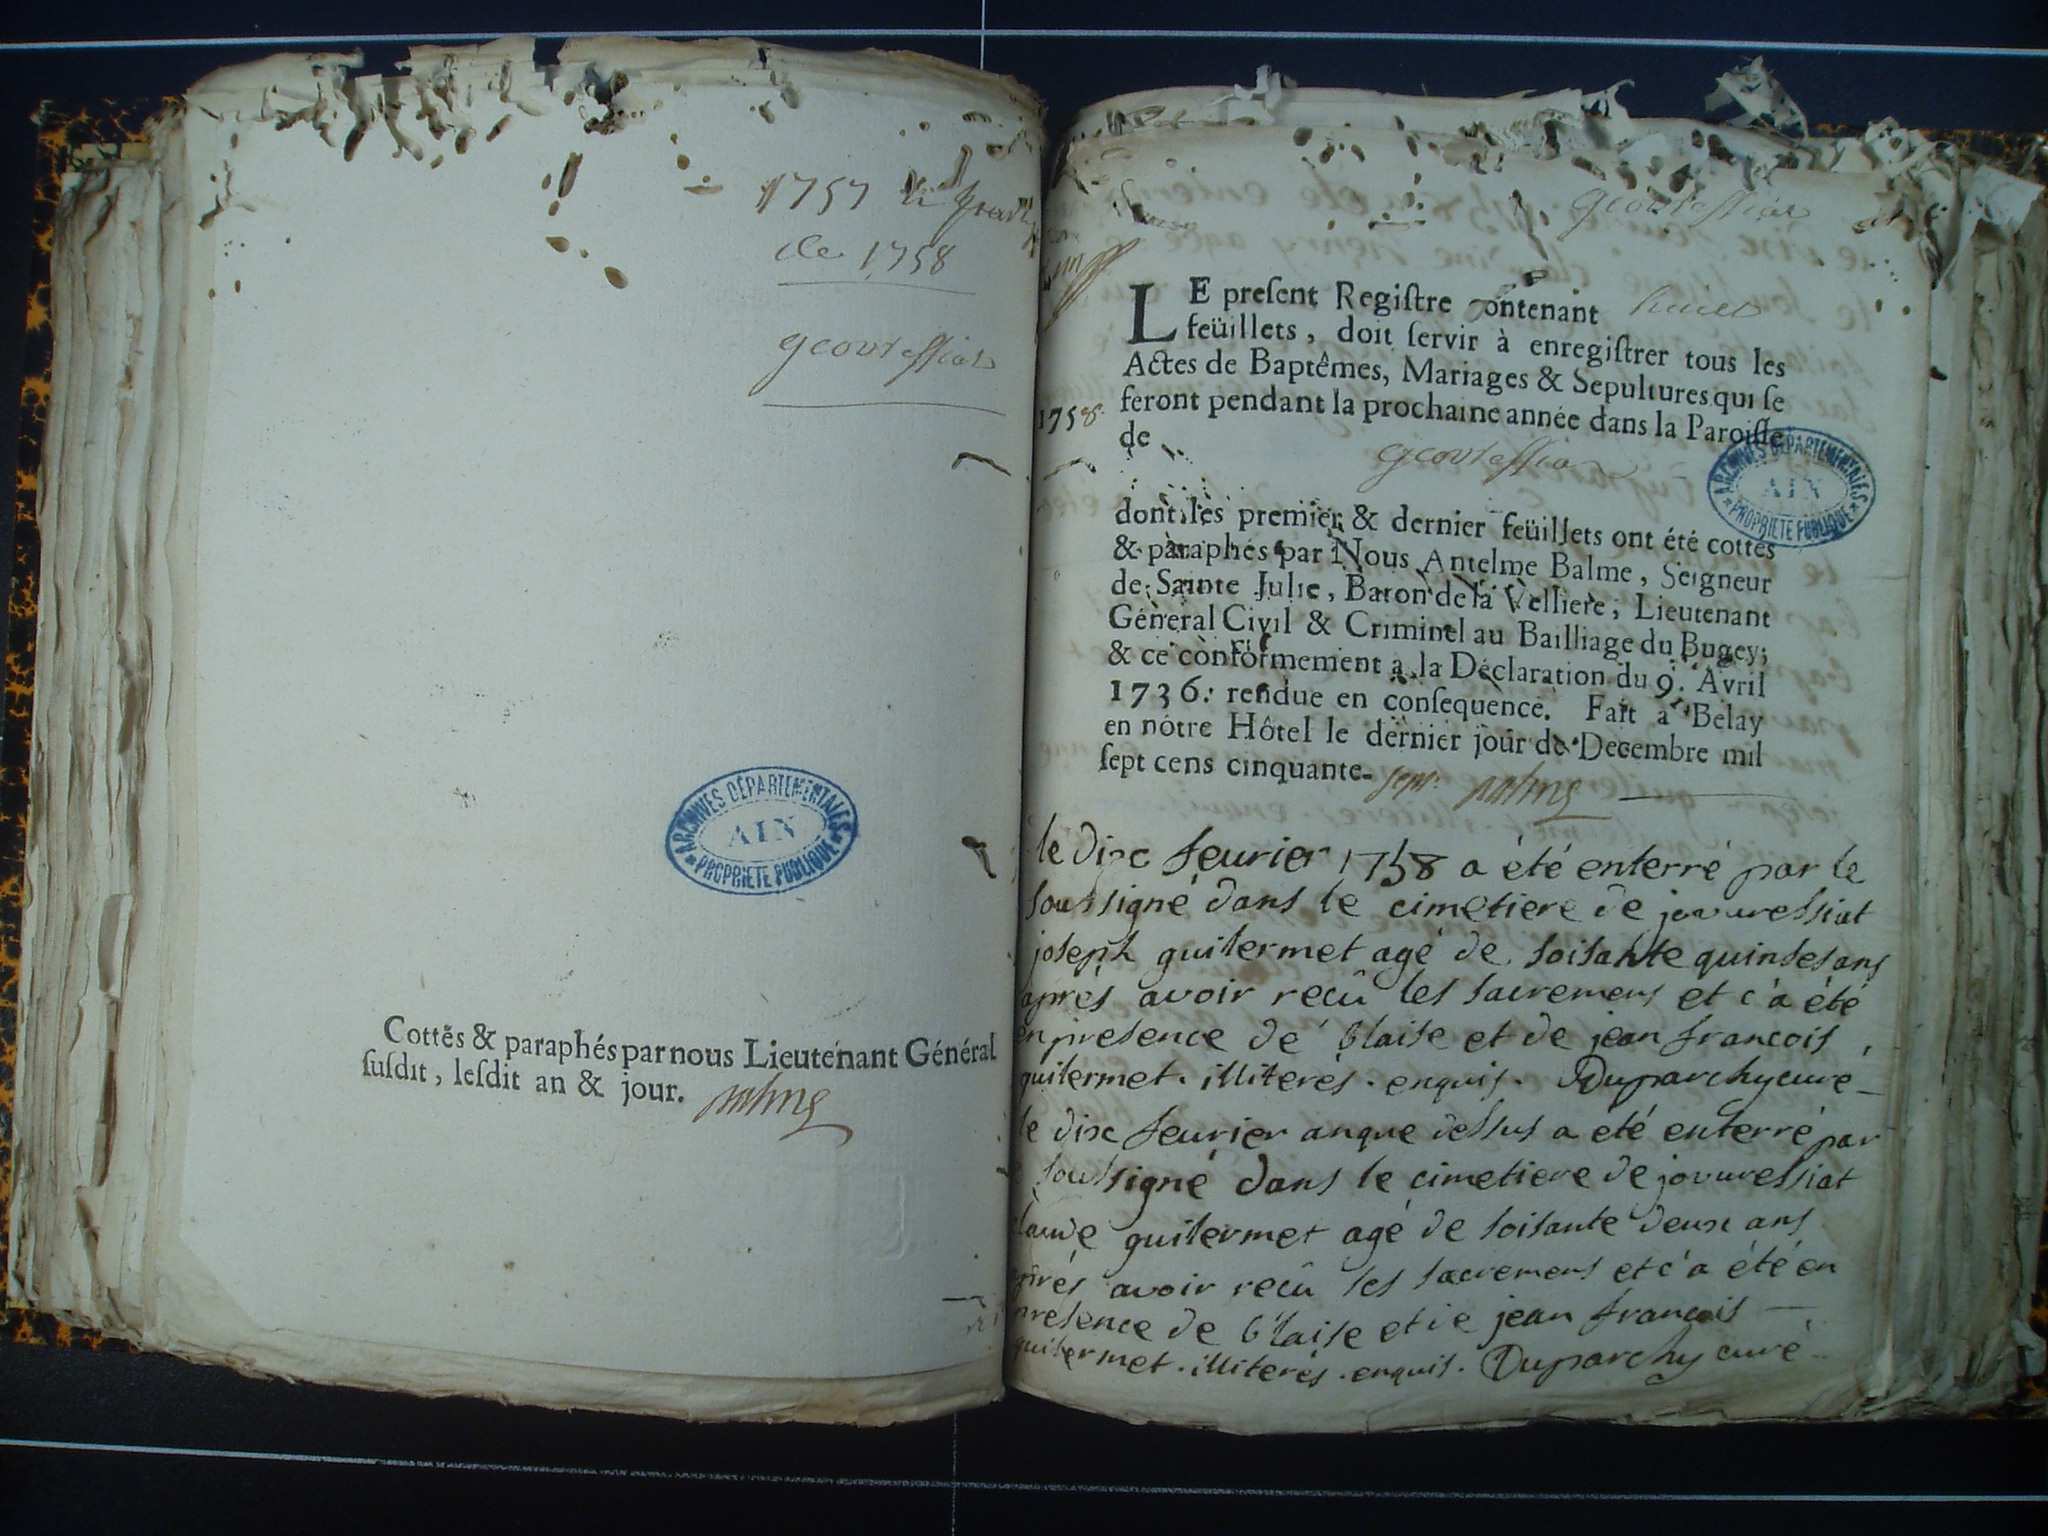 1757
de 1758
geouressiat
ARCHIVES DÉPARTEMENTALES
AIN
PROPRIÉTÉ PUBLIQUE
Cottés & paraphés par nous Lieutenant Général
ſuſdit, leſdit an & jour. Balme
geouressiat
LE preſent Regiſtre contenant huict
feüillets, doit ſervir à enregiſtrer tous les
Actes de Baptêmes, Mariages & Sepultures qui ſe
feront pendant la prochaine année dans la Paroiſſe
1758.
de geouressia
ARCHIVES DÉPARTEMENTALES
AIN
PROPRIÉTÉ PUBLIQUE
dont les premier & dernier feüillets ont été cottés
& paraphés par Nous Antelme Balme, Seigneur
de Sainte Julie, Baron de la Velliere, Lieutenant
Général Civil & Criminel au Bailliage du Bugey;
& ce conformement à la Déclaration du 9. Avril
1736. rendue en conſequence. Fait à Belay
en nôtre Hôtel le dernier jour de Decembre mil
ſept cens cinquante-sept. Balme
le dix feurier 1758 a été enterré par le
soussigné dans le cimetiere de jovuressiat
joseph guilermet agé de soisante quinse ans
aprés avoir recû les sacremens et c'a été
en presence de blaise et de jean francois
guilermet. illiterés. enquis. Duparchy curé
le dix feurier anque dessus a été enterré par
le soussigné dans le cimetiere de jovuressiat
claude guilermet agé de soisante deux ans
aprés avoir recû les sacremens et c'a été en
presence de blaise et de jean francois
guilermet. illiterés. enquis. Duparchy curé